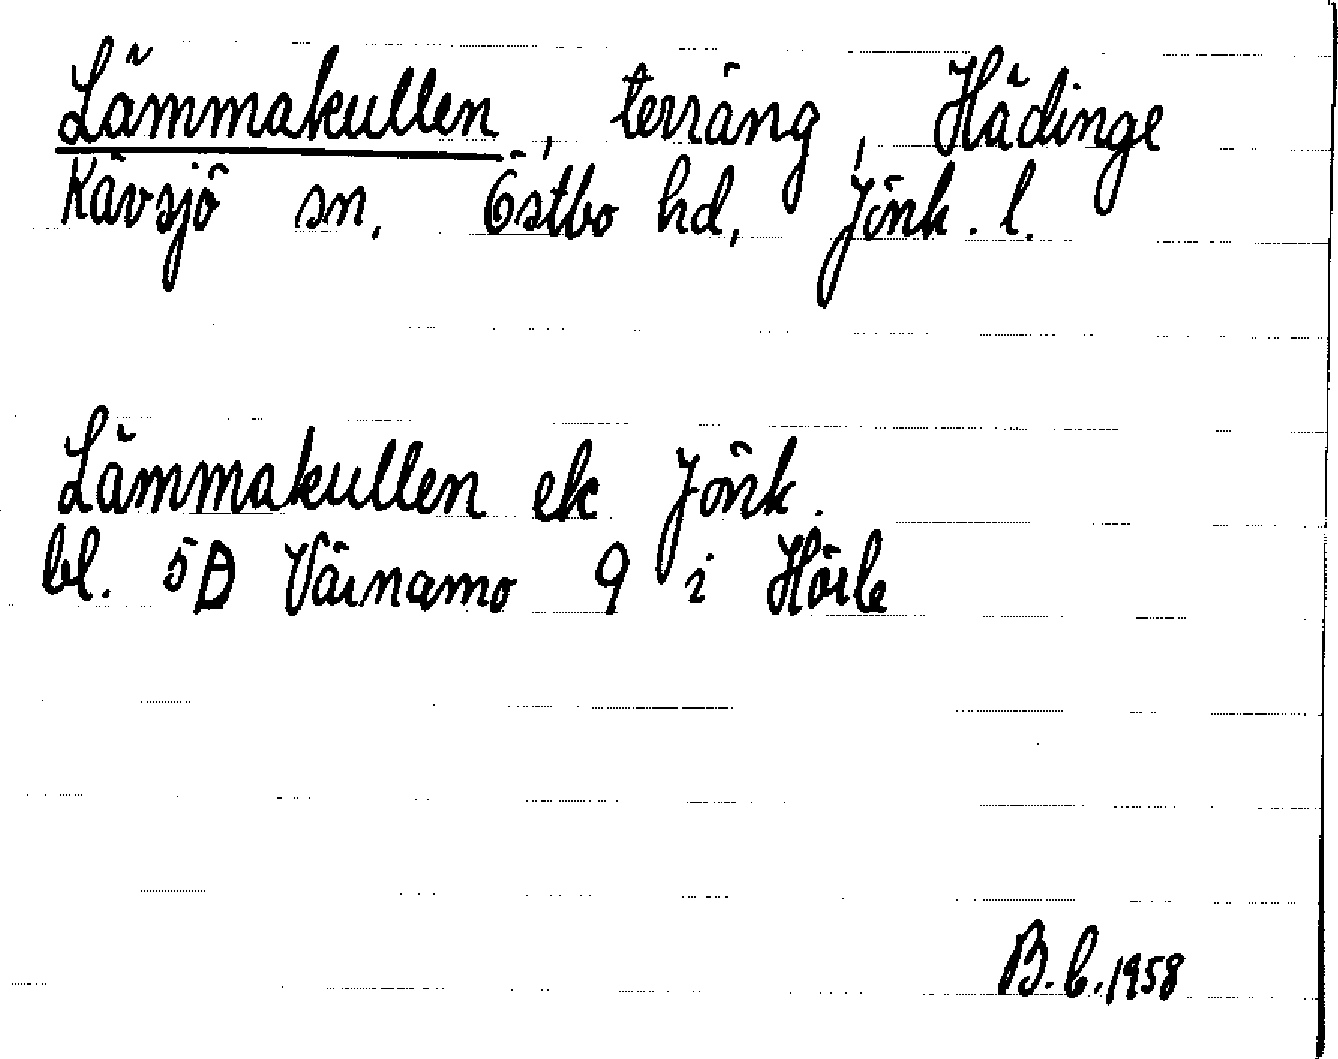 Lämmakullen, terräng, Hädinge
Kävsjö sn, Östbo hd, Jönk. l.
Lämmakullen ek Jönk.
bl. 5D Värnamo 9 i Hörle
B.b. 1958